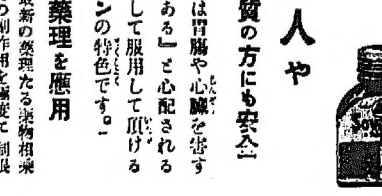 人や
質の方にも安全
は胃腸や心臓を害す
ある』と心配される
して服用して頂ける
ンの特色です。
藥理を應用
最新の藥理たる藥物相乘
の副作用を極度に制限